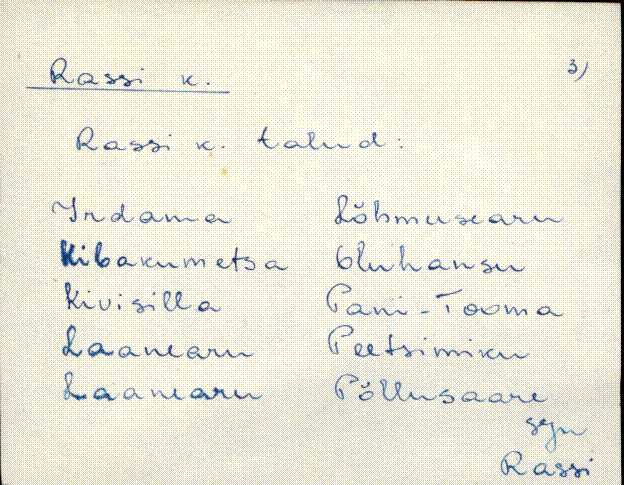 Rassi k. 3)
Rassi k. talud:
Irdama Lõhmusearu
Kibakumetsa Oluhansu
Kivisilla Pani-Tooma
Laanearu Peetsimiku
Laanearu Põllusaare
sgn
Rassi